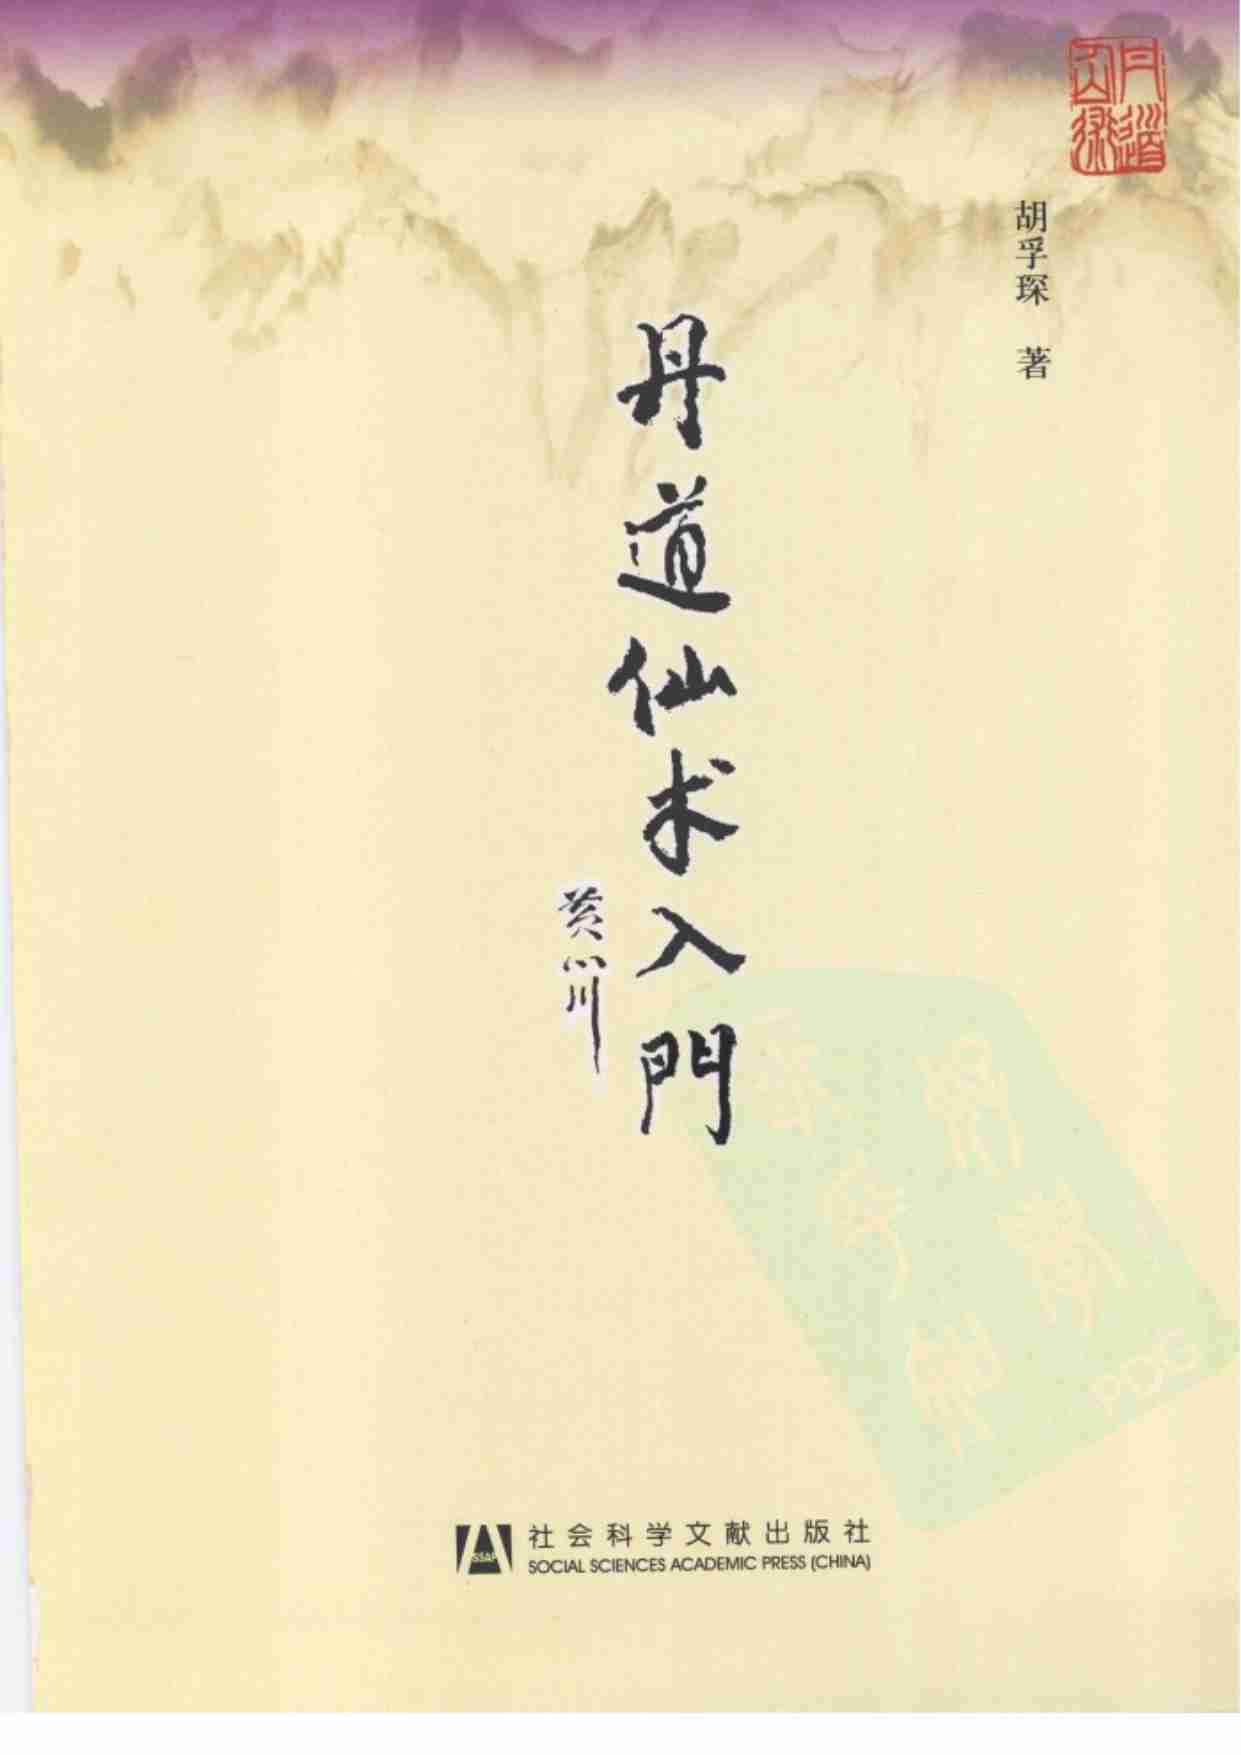 胡孚琛 著
丹道仙术入門
黄心川
社会科学文献出版社
SOCIAL SCIENCES ACADEMIC PRESS (CHINA)
SSAP
PDG